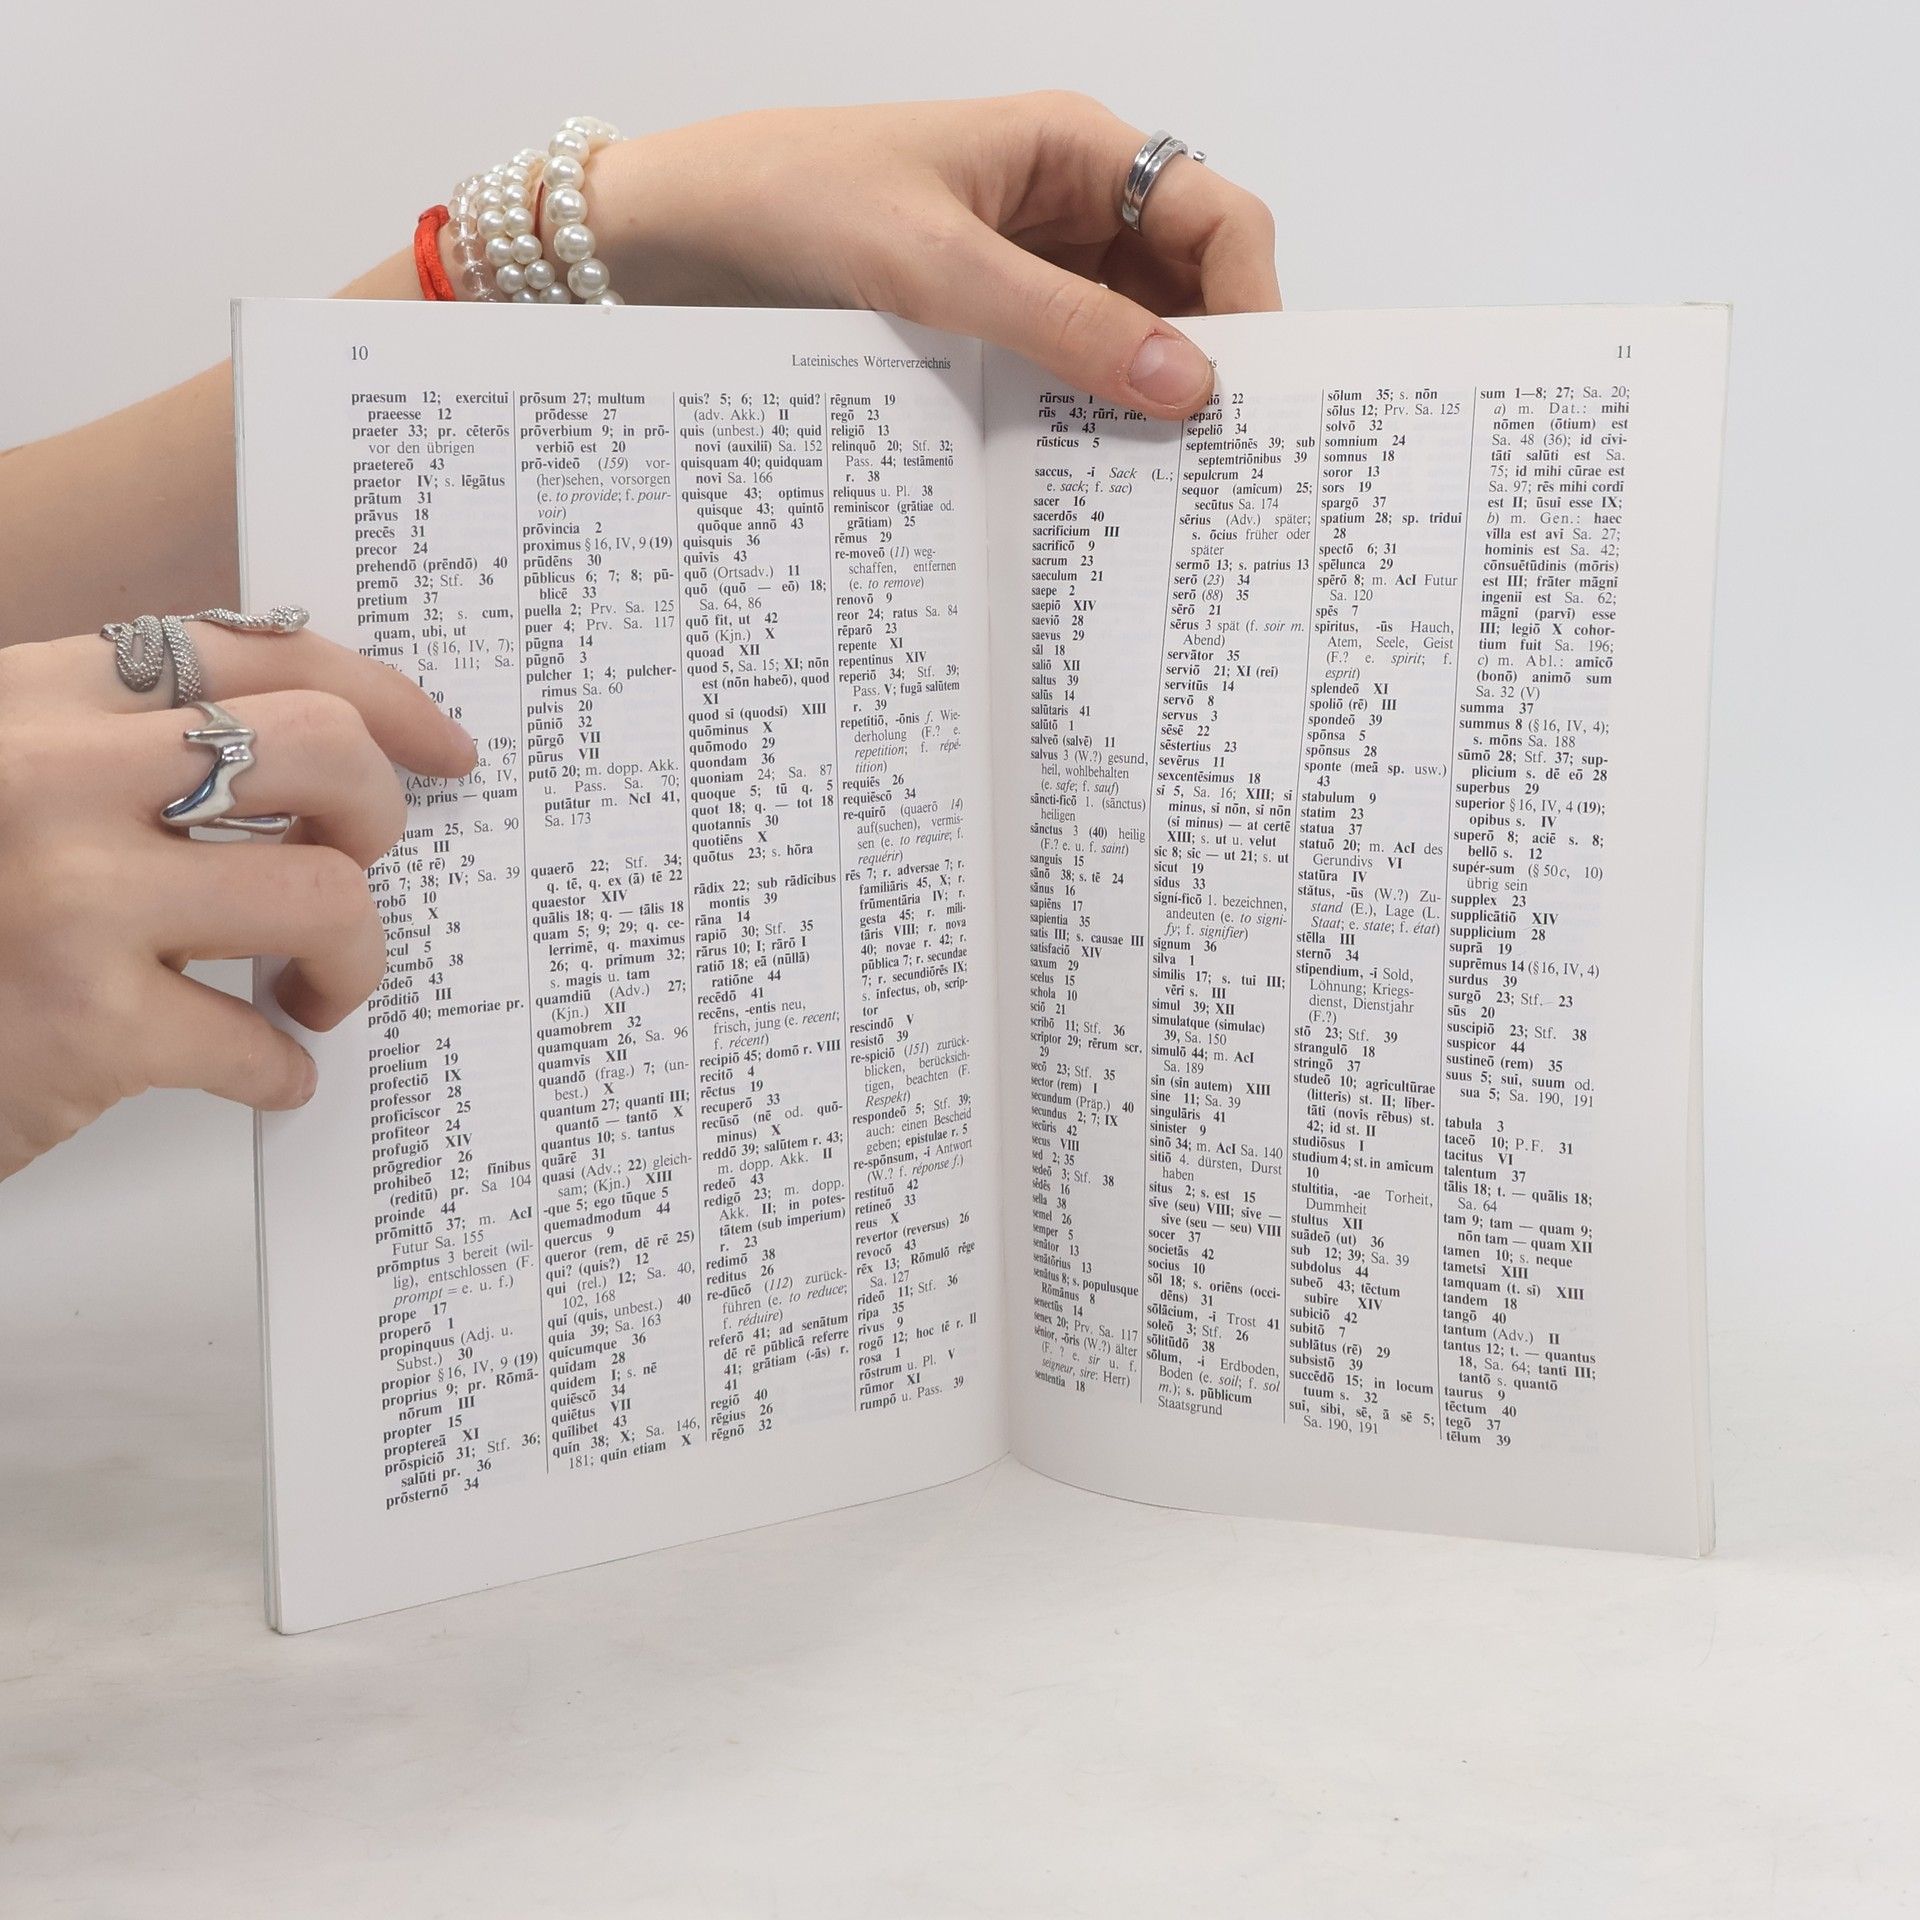 10
Lateinisches Wörterverzeichnis
praesum 12; exercituī
praeesse 12
praeter 33; pr. cēterōs
vor den übrigen
praetereō 43
praetor IV; s. lēgātus
prātum 31
prāvus 18
precēs 31
precor 24
prehendō (prēndō) 40
premō 32; Stf. 36
pretium 37
prīmum 32; s. cum,
quam, ubi, ut
prīmus 1 (§ 16, IV, 7);
Sa. 111; Sa.
I
20
18
7 (19);
Sa. 67
(Adv.) § 16, IV,
9); prius — quam
quam 25, Sa. 90
III
prīvō (tē rē) 29
prō 7; 38; IV; Sa. 39
probō 10
probus X
prōcōnsul 38
procul 5
38
43
prōditiō III
prōdō 40; memoriae pr.
40
proelior 24
proelium 19
profectiō IX
professor 28
proficīscor 25
profiteor 24
profugiō XIV
prōgredior 26
prohibeō 12; fīnibus
(reditū) pr. Sa 104
proinde 44
prōmittō 37; m. AcI
Futur Sa. 155
prōmptus 3 bereit (wil-
lig), entschlossen (F.
prompt = e. u. f.)
prope 17
properō 1
propinquus (Adj. u.
Subst.) 30
propior § 16, IV, 9 (19)
proprius 9; pr. Rōmā-
nōrum III
propter 15
proptereā XI
prōspiciō 31; Stf. 36;
salūtī pr. 36
prōsternō 34
prōsum 27; multum
prōdesse 27
prōverbium 9; in prō-
verbiō est 20
prō-videō (159) vor-
(her)sehen, vorsorgen
(e. to provide; f. pour-
voir)
prōvincia 2
proximus § 16, IV, 9 (19)
prūdēns 30
pūblicus 6; 7; 8; pū-
blicē 33
puella 2; Prv. Sa. 125
puer 4; Prv. Sa. 117
pūgna 14
pūgnō 3
pulcher 1; 4; pulcher-
rimus Sa. 60
pulvis 20
pūniō 32
pūrgō VII
pūrus VII
putō 20; m. dopp. Akk.
u. Pass. Sa. 70;
putātur m. NcI 41,
Sa. 173
quaerō 22; Stf. 34;
q. tē, q. ex (ā) tē 22
quaestor XIV
quālis 18; q. — tālis 18
quam 5; 9; 29; q. ce-
lerrimē, q. maximus
26; q. prīmum 32;
s. magis u. tam
quamdiū (Adv.) 27;
(Kjn.) XII
quamobrem 32
quamquam 26, Sa. 96
quamvīs XII
quandō (frag.) 7; (un-
best.) X
quantum 27; quantī III;
quantō — tantō X
quantus 10; s. tantus
quārē 31
quasi (Adv.; 22) gleich-
sam; (Kjn.) XIII
-que 5; ego tūque 5
quemadmodum 44
quercus 9
queror (rem, dē rē 25)
quī? (quis?) 12
quī (rel.) 12; Sa. 40,
102, 168
quī (quis, unbest.) 40
quia 39; Sa. 163
quīcumque 36
quīdam 28
quidem I; s. nē
quiēscō 34
quiētus VII
quīlibet 43
quīn 38; X; Sa. 146,
181; quīn etiam X
quis? 5; 6; 12; quid?
(adv. Akk.) II
quis (unbest.) 40; quid
novī (auxiliī) Sa. 152
quisquam 40; quidquam
novī Sa. 166
quisque 43; optimus
quisque 43; quīntō
quōque annō 43
quisquis 36
quīvīs 43
quō (Ortsadv.) 11
quō (quō — eō) 18;
Sa. 64, 86
quō fit, ut 42
quō (Kjn.) X
quoad XII
quod 5, Sa. 15; XI; nōn
est (nōn habeō), quod
XI
quod sī (quodsī) XIII
quōminus X
quōmodo 29
quondam 36
quoniam 24; Sa. 87
quoque 5; tū q. 5
quot 18; q. — tot 18
quotannīs 30
quotiēns X
quōtus 23; s. hōra
rādīx 22; sub rādīcibus
montis 39
rāna 14
rapiō 30; Stf. 35
rārus 10; I; rārō I
ratiō 18; eā (nūllā)
ratiōne 44
recēdō 41
recēns, -entis neu,
frisch, jung (e. recent;
f. récent)
recipiō 45; domō r. VIII
recitō 4
rēctus 19
recuperō 33
recūsō (nē od. quō-
minus) X
reddō 39; salūtem r. 43;
m. dopp. Akk. II
redeō 43
redigō 23; m. dopp.
Akk. II; in potes-
tātem (sub imperium)
r. 23
redimō 38
reditus 26
re-dūcō (112) zurück-
führen (e. to reduce;
f. réduire)
referō 41; ad senātum
dē rē pūblicā referre
41; grātiam (-ās) r.
41
regiō 40
rēgius 26
rēgnō 32
rēgnum 19
regō 23
religiō 13
relinquō 20; Stf. 32;
Pass. 44; testāmentō
r. 38
reliquus u. Pl. 38
reminīscor (grātiae od.
grātiam) 25
rēmus 29
re-moveō (11) weg-
schaffen, entfernen
(e. to remove)
renovō 9
reor 24; ratus Sa. 84
rēparō 23
repente XI
repentīnus XIV
reperiō 34; Stf. 39;
Pass. V; fugā salūtem
r. 39
repetītiō, -ōnis f. Wie-
derholung (F.? e.
repetition; f. répé-
tition)
requiēs 26
requiēscō 34
re-quīrō (quaerō 14)
auf(suchen), vermis-
sen (e. to require; f.
requérir)
rēs 7; r. adversae 7; r.
familiāris 45, X; r.
frūmentāria IV; r.
gesta 45; r. mīli-
tāris VIII; r. nova
40; novae r. 42; r.
pūblica 7; r. secundae
7; r. secundiōrēs IX;
s. īnfectus, ob, scrīp-
tor
rescindō V
resistō 39
re-spiciō (151) zurück-
blicken, berücksich-
tigen, beachten (F.
Respekt)
respondeō 5; Stf. 39;
auch: einen Bescheid
geben; epistulae r. 5
re-spōnsum, -ī Antwort
(W.? f. réponse f.)
restituō 42
retineō 33
reus X
revertor (reversus) 26
revocō 43
rēx 13; Rōmulō rēge
Sa. 127
rīdeō 11; Stf. 36
rīpa 35
rīvus 9
rogō 12; hoc tē r. II
rosa 1
rōstrum u. Pl. V
rūmor XI
rumpō u. Pass. 39
11
rūrsus 1
rūs 43; rūrī, rūe,
rūs 43
rūsticus 5
saccus, -ī Sack (L.;
e. sack; f. sac)
sacer 16
sacerdōs 40
sacrificium III
sacrificō 9
sacrum 23
saeculum 21
saepe 2
saepiō XIV
saeviō 28
saevus 29
sāl 18
saliō XII
saltus 39
salūs 14
salūtāris 41
salūtō 1
salveō (salvē) 11
salvus 3 (W.?) gesund,
heil, wohlbehalten
(e. safe; f. sauf)
sāncti-ficō 1. (sānctus)
heiligen
sānctus 3 (40) heilig
(F.? e. u. f. saint)
sanguis 15
sānō 38; s. tē 24
sānus 16
sapiēns 17
sapientia 35
satis III; s. causae III
satisfaciō XIV
saxum 29
scelus 15
schola 10
sciō 21
scrībō 11; Stf. 36
scrīptor 29; rērum scr.
29
secō 23; Stf. 35
sector (rem) I
secundum (Präp.) 40
secundus 2; 7; IX
secūris 42
secus VIII
sed 2; 35
sedeō 3; Stf. 38
sēdēs 16
sella 38
semel 26
semper 5
senātor 13
senātōrius 13
senātus 8; s. populusque
Rōmānus 8
senectūs 14
senex 20; Prv. Sa. 117
senior, -ōris (W.?) älter
(F. ? e. sir u. f.
seigneur, sire; Herr)
sententia 18
22
sēparō 3
sepeliō 34
septemtriōnēs 39; sub
septemtriōnibus 39
sepulcrum 24
sequor (amīcum) 25;
secūtus Sa. 174
sērius (Adv.) später;
s. ōcius früher oder
später
sermō 13; s. patrius 13
serō (23) 34
serō (88) 35
sērō 21
sērus 3 spät (f. soir m.
Abend)
servātor 35
serviō 21; XI (reī)
servitūs 14
servō 8
servus 3
sēsē 22
sēstertius 23
sevērus 11
sexcentēsimus 18
sī 5, Sa. 16; XIII; sī
minus, sī nōn, sī nōn
(sī minus) — at certē
XIII; s. ut u. velut
sīc 8; sīc — ut 21; s. ut
sīcut 19
sīdus 33
sīgni-ficō 1. bezeichnen,
andeuten (e. to signi-
fy; f. signifier)
sīgnum 36
silva 1
similis 17; s. tuī III;
vērī s. III
simul 39; XII
simulatque (simulac)
39, Sa. 150
simulō 44; m. AcI
Sa. 189
sīn (sīn autem) XIII
sine 11; Sa. 39
singulāris 41
sinister 9
sinō 34; m. AcI Sa. 140
sitiō 4. dürsten, Durst
haben
situs 2; s. est 15
sīve (seu) VIII; sīve —
sīve (seu — seu) VIII
socer 37
societās 42
socius 10
sōl 18; s. oriēns (occi-
dēns) 31
sōlācium, -ī Trost 41
soleō 3; Stf. 26
sōlitūdō 38
sōlum, -ī Erdboden,
Boden (e. soil; f. sol
m.); s. pūblicum
Staatsgrund
sōlum 35; s. nōn
sōlus 12; Prv. Sa. 125
solvō 32
somnium 24
somnus 18
soror 13
sors 19
spargō 37
spatium 28; sp. trīduī
28
spectō 6; 31
spēlunca 29
spērō 8; m. AcI Futur
Sa. 120
spēs 7
spīritus, -ūs Hauch,
Atem, Seele, Geist
(F.? e. spirit; f.
esprit)
splendeō XI
spoliō (rē) III
spondeō 39
spōnsa 5
spōnsus 28
sponte (meā sp. usw.)
43
stabulum 9
statim 23
statua 37
statuō 20; m. AcI des
Gerundivs VI
statūra IV
status, -ūs (W.?) Zu-
stand (E.), Lage (L.
Staat; e. state; f. état)
stēlla III
sternō 34
stīpendium, -ī Sold,
Löhnung; Kriegs-
dienst, Dienstjahr
(F.?)
stō 23; Stf. 39
strangulō 18
stringō 37
studeō 10; agricultūrae
(litterīs) st. II; līber-
tātī (novīs rēbus) st.
42; id st. II
studiōsus I
studium 4; st. in amīcum
10
stultitia, -ae Torheit,
Dummheit
stultus XII
suādeō (ut) 36
sub 12; 39; Sa. 39
subdolus 44
subeō 43; tēctum
subīre XIV
subiciō 42
subitō 7
sublātus (rē) 29
subsistō 39
succēdō 15; in locum
tuum s. 32
suī, sibi, sē, ā sē 5;
Sa. 190, 191
sum 1—8; 27; Sa. 20;
a) m. Dat.: mihi
nōmen (ōtium) est
Sa. 48 (36); id cīvi-
tātī salūtī est Sa.
75; id mihi cūrae est
Sa. 97; rēs mihi cordī
est II; ūsuī esse IX;
b) m. Gen.: haec
vīlla est avī Sa. 27;
hominis est Sa. 42;
cōnsuētūdinis (mōris)
est III; frāter māgnī
ingeniī est Sa. 62;
māgnī (parvī) esse
III; legiō X cohor-
tium fuit Sa. 196;
c) m. Abl.: amīcō
(bonō) animō sum
Sa. 32 (V)
summa 37
summus 8 (§ 16, IV, 4);
s. mōns Sa. 188
sūmō 28; Stf. 37; sup-
plicium s. dē eō 28
superbus 29
superior § 16, IV, 4 (19);
opibus s. IV
superō 8; aciē s. 8;
bellō s. 12
supér-sum (§ 50c, 10)
übrig sein
supplex 23
supplicātiō XIV
supplicium 28
suprā 19
suprēmus 14 (§ 16, IV, 4)
surdus 39
surgō 23; Stf. 23
sūs 20
suscipiō 23; Stf. 38
suspicor 44
sustineō (rem) 35
suus 5; suī, suum od.
sua 5; Sa. 190, 191
tabula 3
taceō 10; P.F. 31
tacitus VI
talentum 37
tālis 18; t. — quālis 18;
Sa. 64
tam 9; tam — quam 9;
nōn tam — quam XII
tamen 10; s. neque
tametsī XIII
tamquam (t. sī) XIII
tandem 18
tangō 40
tantum (Adv.) II
tantus 12; t. — quantus
18, Sa. 64; tantī III;
tantō s. quantō
taurus 9
tēctum 40
tegō 37
tēlum 39